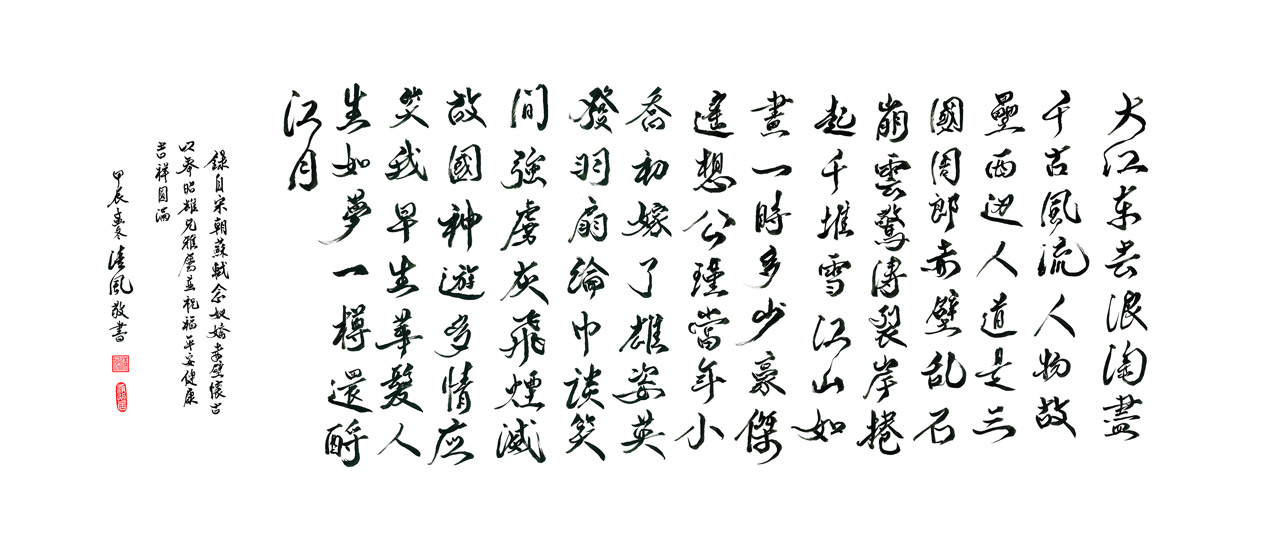 大江东去浪淘盡
千古風流人物故
壘西边人道是三
國周郎赤壁乱石
崩雲驚濤裂岸捲
起千堆雪江山如
畫一時多少豪傑
遙想公瑾當年小
喬初嫁了雄姿英
發羽扇綸巾談笑
間強虜灰飛煙滅
故國神遊多情应
笑我早生華髮人
生如夢一樽還酹
江月
錄自宋朝蘇軾念奴嬌赤壁懷古
以奉昭雄兄雅屬並祝福平安健康
吉祥圓滿
甲辰孟冬清風敬書